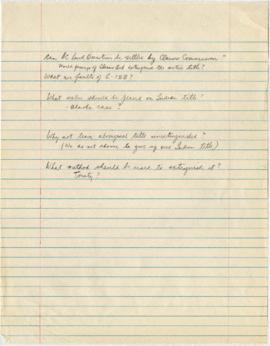 Can BC Land Question be settled by Claims Commission"
Would passage of Claims Bill extinguish the entire title?
What are faults of C-123?
What value should be placed on Indian title?
- Alaska case?
Why not leave aboriginal title unextinguished?
(We do not choose to give up our Indian title)
What method should be used to extinguish it?
Treaty?